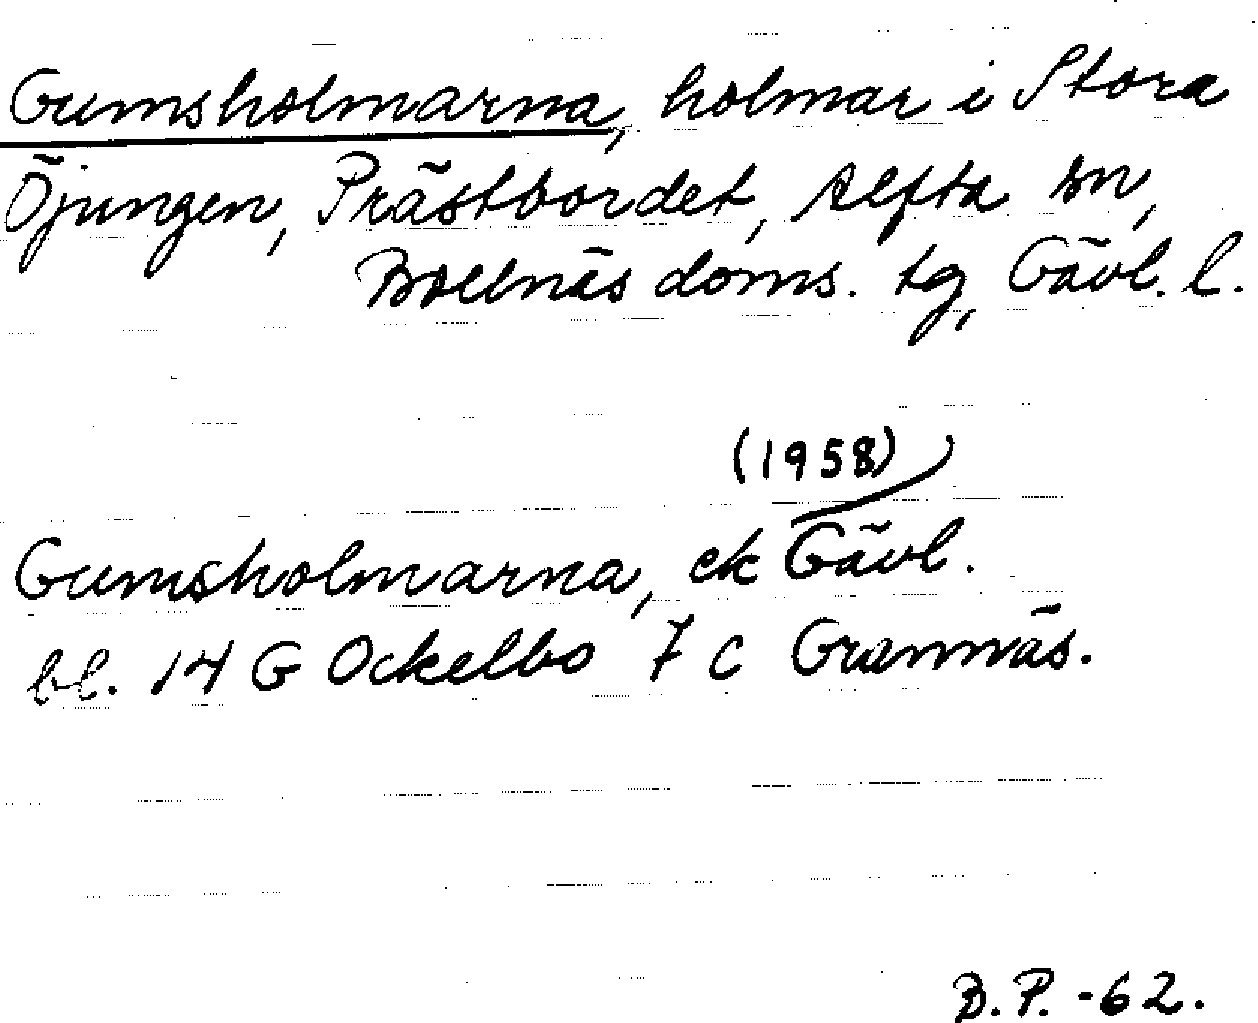 Gumsholmarna, holmar i Stora
Öjungen, Prästbordet, Alfta sn,
Bollnäs doms. tg, Gävl. l.
(1958)
Gumsholmarna, ek Gävl.
bl. 14 G Ockelbo 7 c Grannäs.
B.P. -62.